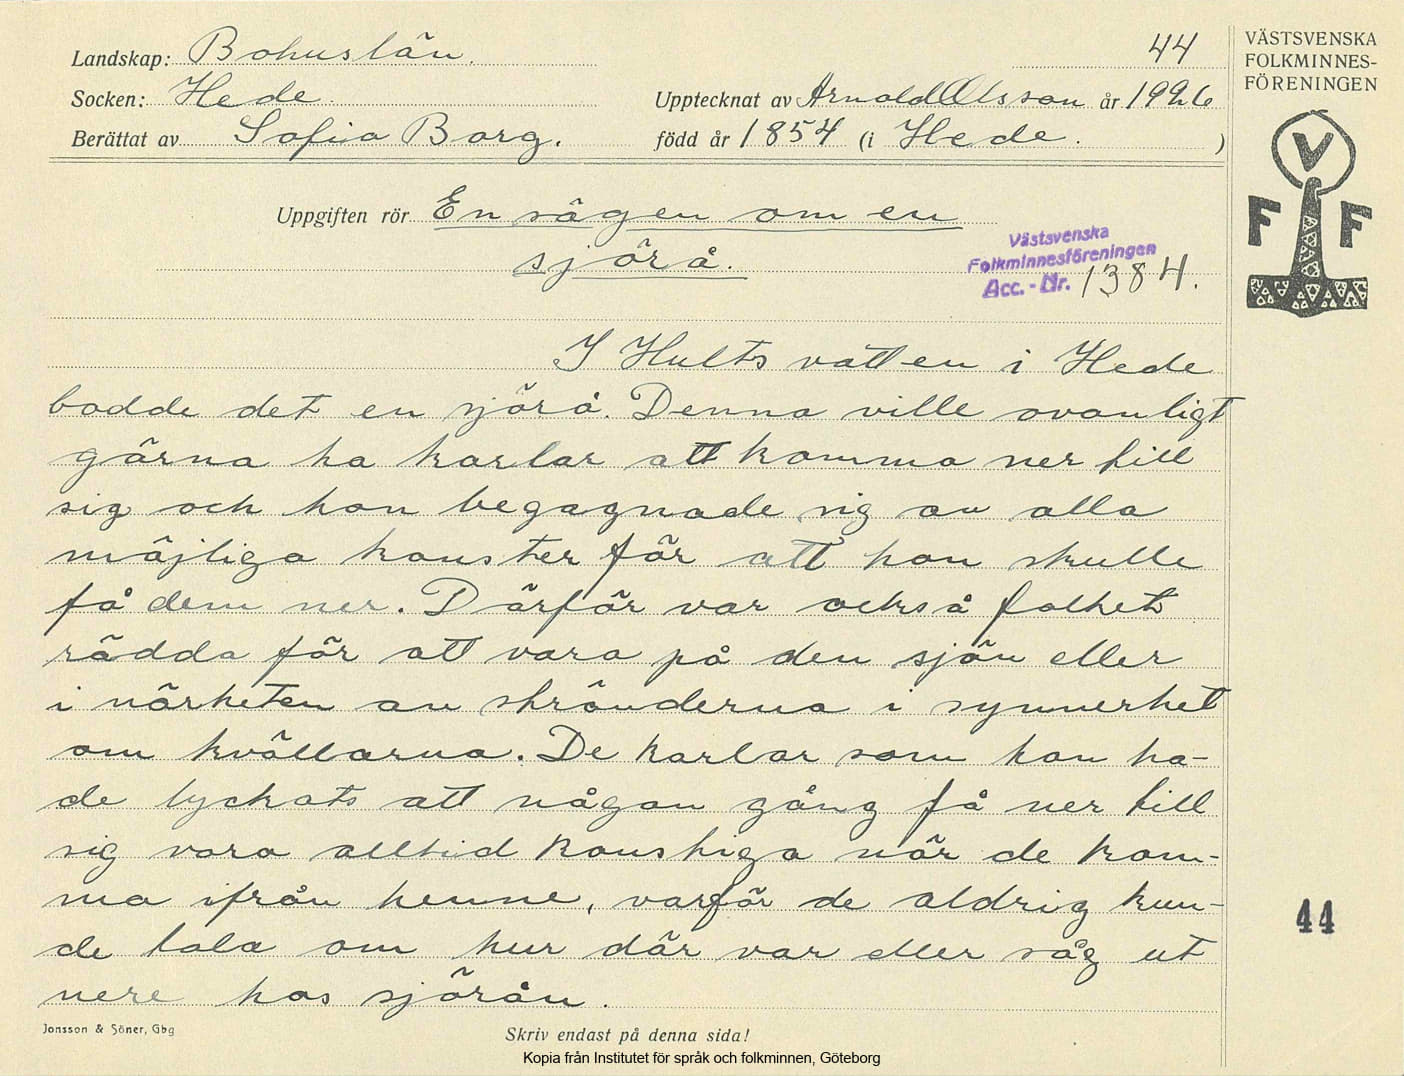 Landskap: Bohuslän. 44
Socken: Hede. Upptecknat av Arnold Olsson år 1926
Berättat av Sofia Borg. född år 1854 (i Hede. )
VÄSTSVENSKA
FOLKMINNES-
FÖRENINGEN
V
F F
Uppgiften rör En sägen om en
sjörå.
Västsvenska
Folkminnesföreningen
Acc. - Nr. 1384.
I Hults vatten i Hede
bodde det en sjörå. Denna ville ovanligt
gärna ha karlar att komma ner till
sig och hon begagnade sig av alla
möjliga konster för att hon skulle
få dem ner. Därför var också folket
rädda för att vara på den sjön eller
i närheten av stränderna i synnerhet
om kvällarna. De karlar som hon ha-
de lyckats att någon gång få ner till
sig voro alltid konstiga när de kom-
ma ifrån henne, varför de aldrig kun-
de tala om hur där var eller såg ut
nere hos sjörån.
44
Jonsson & Söner, Gbg
Skriv endast på denna sida!
Kopia från Institutet för språk och folkminnen, Göteborg